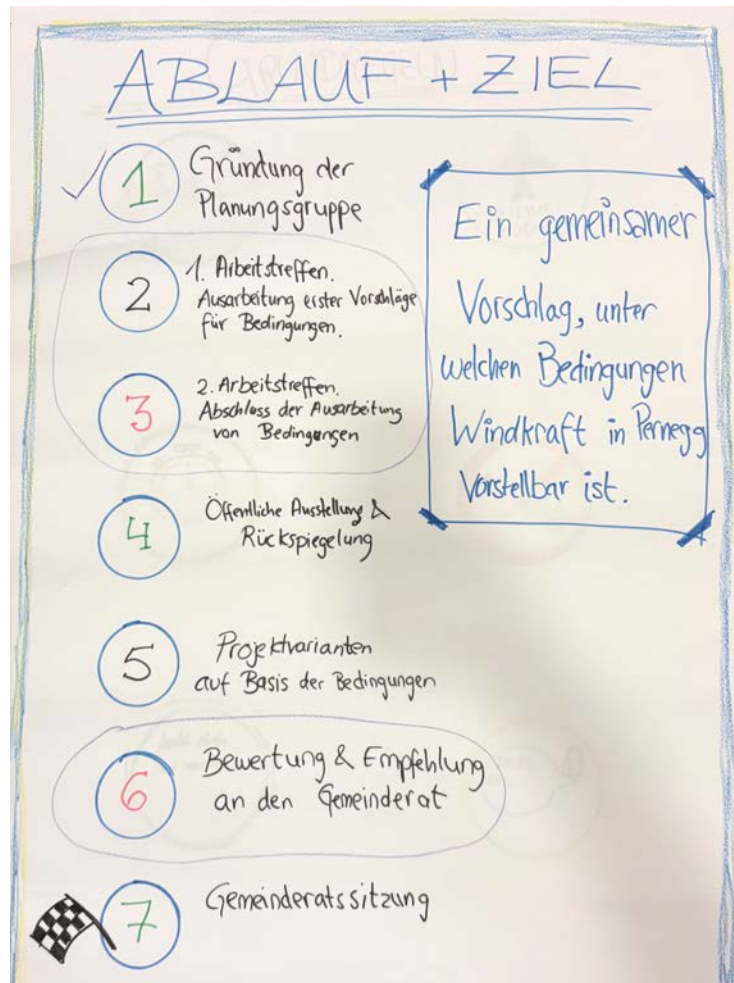 ABLAUF + ZIEL
1 Gründung der
Planungsgruppe
2 1. Arbeitstreffen.
Ausarbeitung erster Vorschläge
für Bedingungen.
3 2. Arbeitstreffen.
Abschluss der Ausarbeitung
von Bedingungen
4 Öffentliche Ausstellung &
Rückspiegelung
5 Projektvarianten
auf Basis der Bedingungen
6 Bewertung & Empfehlung
an den Gemeinderat
7 Gemeinderatssitzung
Ein gemeinsamer
Vorschlag, unter
welchen Bedingungen
Windkraft in Pernegg
Vorstellbar ist.